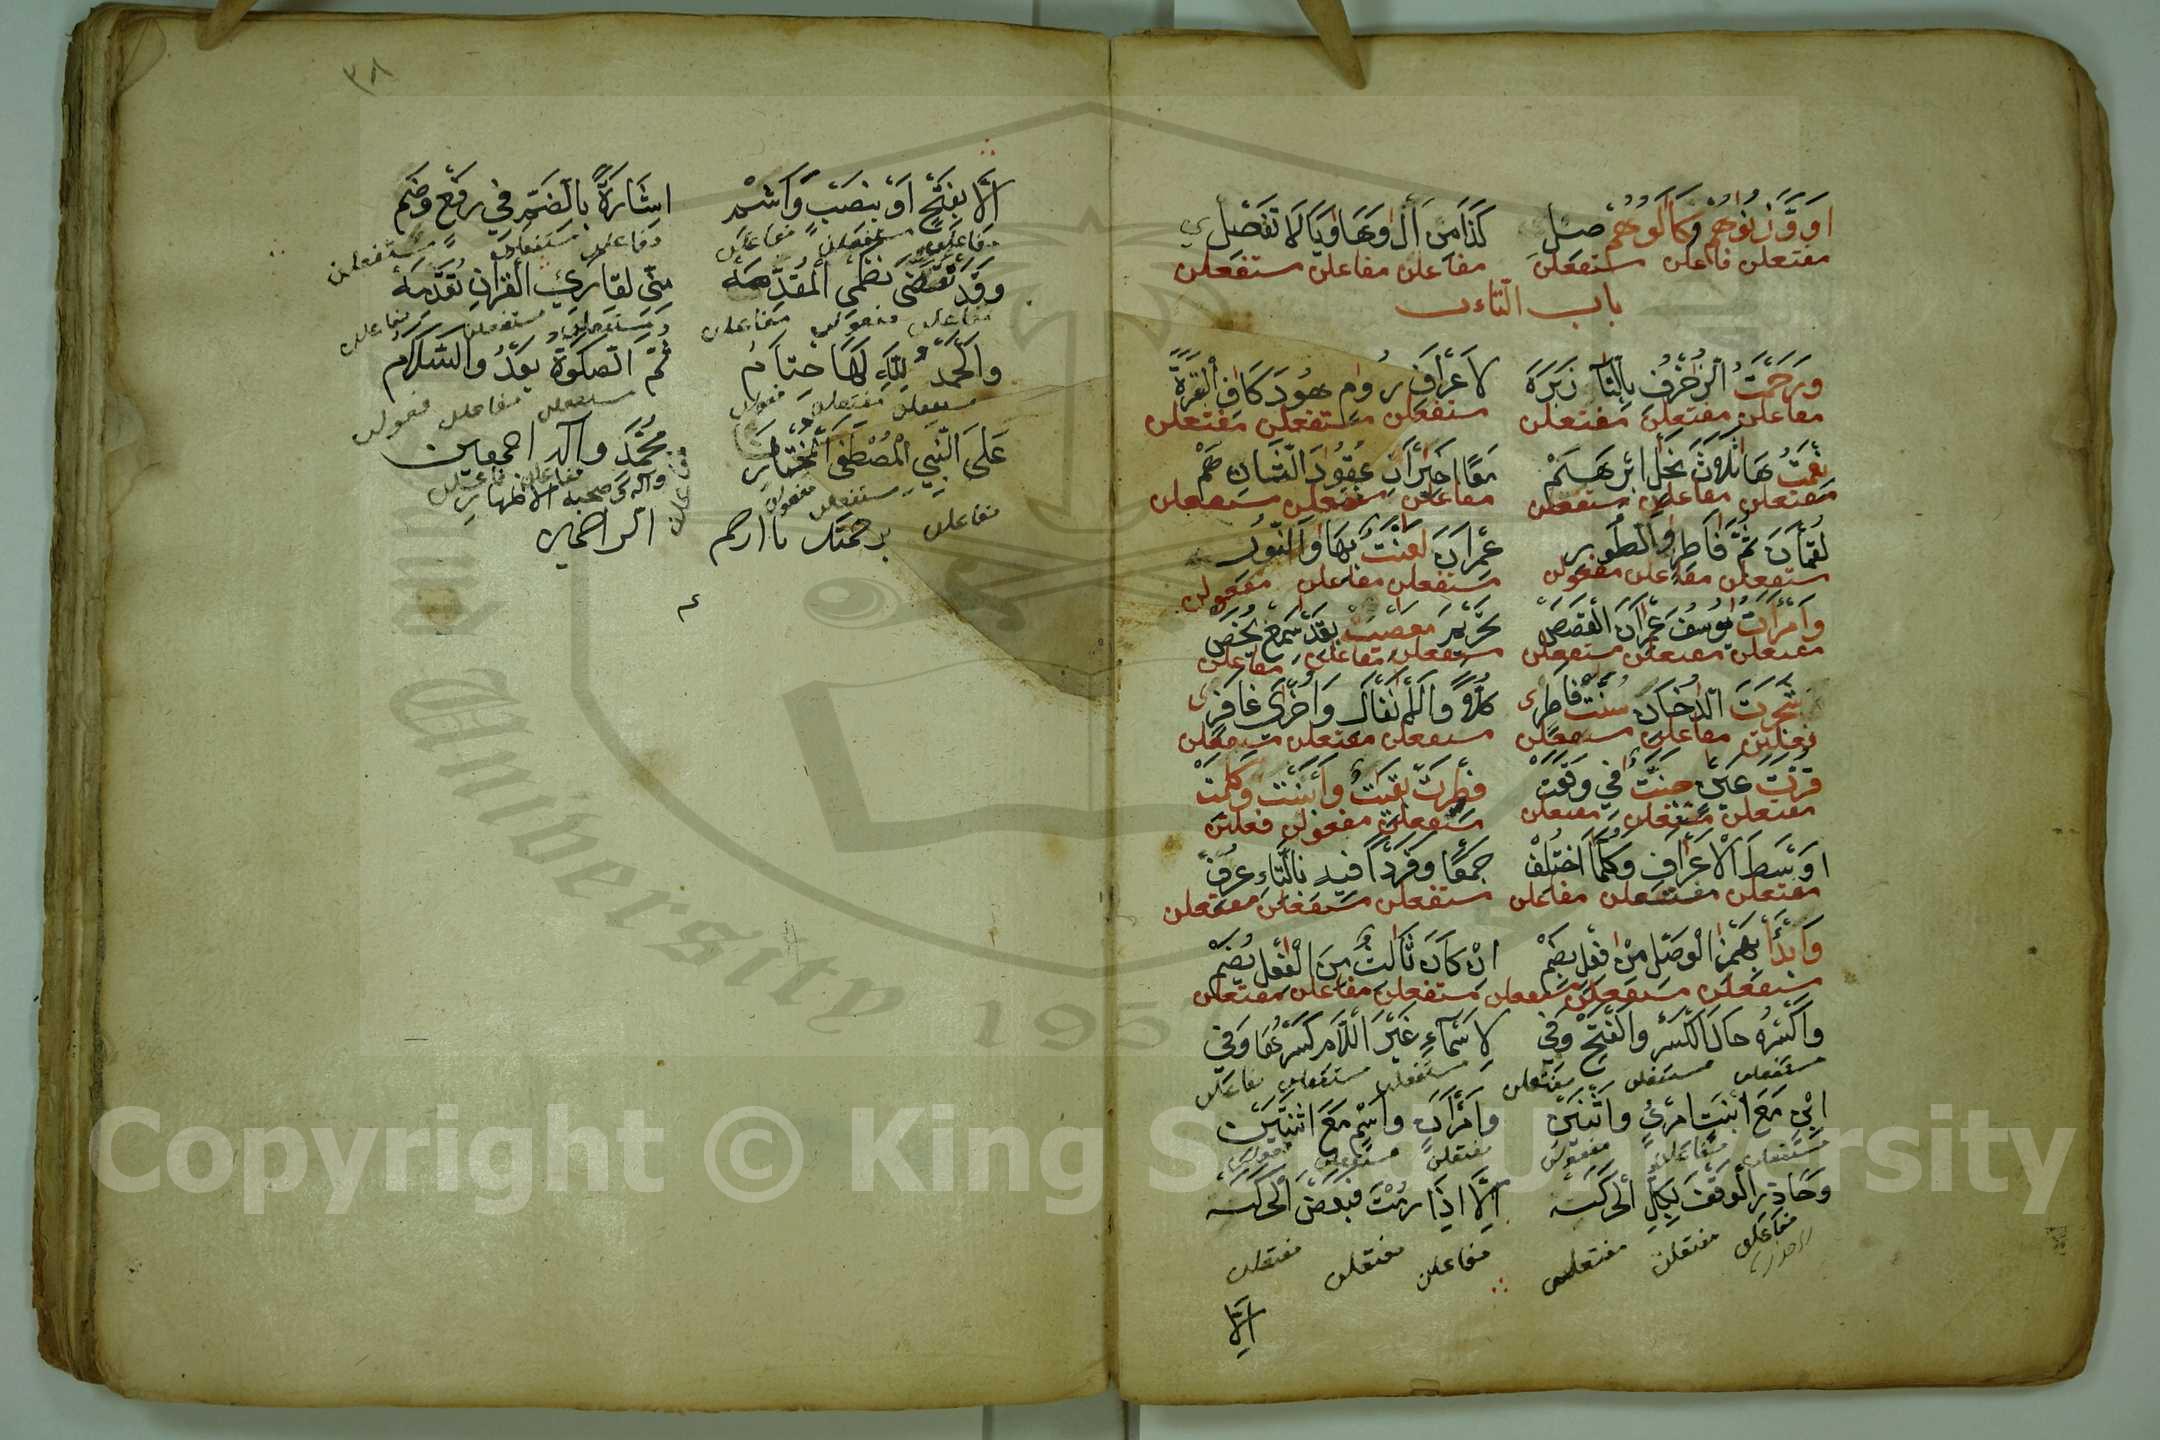 اَوْ وَّزَنُوْهُمْ وَكَالُوْهُمْ صِلِ كَذَا مِنَ اَلْ وَهَا وَيَا لَا تَفْصِلِ
مفتعلن فاعلن مستفعلن مفاعلن مفاعلن مستفعلن
باب التاءت
وَرَحْمَتُ الزُّخْرُفِ بِالتَّا زَبَرَهْ لَاعْرَافِ رُومٍ هُودَ كَافِ الْبَقَرَهْ
مفاعلن مفتعلن مفتعلن مستفعلن مستفعلن مفتعلن
نِعْمَتُهَا ثَلٰثُ نَحْلٍ ابْرَهَمْ مَعًا اَخِيْرَاتٌ عُقُوْدَ الثَّانِ هَمْ
مفتعلن مفاعلن مستفعلن مفاعلن مفتعلن مستفعلن
لُقْمَانَ ثُمَّ فَاطِرٍ وَالطُّوْرِ عِمْرَانَ لَعْنَتَ بِهَا وَالنُّوْرِ
مستفعلن مفاعلن مفعولن مستفعلن مفاعلن مفعولن
وَامْرَاَتُ يُوْسُفَ عِمْرَانَ الْقَصَصْ تَحْرِيْمَ مَعْصِيَتْ بِقَدْ سَمِعْ يُخَصْ
مفتعلن مفتعلن مستفعلن مستفعلن مفاعلن مفاعلن
شَجَرَتَ الدُّخَانِ سُنَّتْ فَاطِرِ كُلًّا وَالْاَنْفَالَ وَاُخْرٰى غَافِرِ
فعلتن مفاعلن مستفعلن مستفعلن مفتعلن مستفعلن
قُرَّتُ عَيْنٍ جَنَّتٌ فِي وَقَعَتْ فِطْرَتْ بَقِيَّتْ وَابْنَتْ وَكَلِمَتْ
مفتعلن مستفعلن مفتعلن مستفعلن مفعولن فعلتن
اَوْسَطَ الْاَعْرَافِ وَكُلُّ مَا اخْتُلِفْ جَمْعًا وَفَرْدًا فِيهِ بِالتَّاءِ عُرِفْ
مفتعلن مستفعلن مفاعلن مستفعلن مستفعلن مفتعلن
وَابْدَأْ بِهَمْزِ الْوَصْلِ مِنْ فِعْلٍ بِضَمْ اِنْ كَانَ ثَالِثٌ مِنَ الْفِعْلِ يُضَمْ
مستفعلن مستفعلن مستفعلن مستفعلن مفاعلن مفتعلن
وَاكْسِرْهُ حَالَ الْكَسْرِ وَالْفَتْحِ وَفِي لَاسْمَاءِ غَيْرَ اللَّامِ كَسْرُهَا وَفِي
مستفعلن مستفعلن مفتعلن مستفعلن مستفعلن مفاعلن
اِبْنٍ مَعَ ابْنَتِ امْرِئٍ وَاثْنَيْنِ وَامْرَاَةٍ وَاسْمٍ مَعَ اثْنَتَيْنِ
مستفعلن مفاعلن مفعولن مفتعلن مستفعلن فعولن
وَحَاذِرِ الْوَقْفَ بِكُلِّ الْحَرَكَهْ اِلَّا اِذَا رُمْتَ فَبَعْضُ الْحَرَكَهْ
مفاعلن مفتعلن مفتعلن مفاعلن مفتعلن مفتعلن
اِلَّا
٣٨
اِلَّا بِفَتْحٍ اَوْ بِنَصْبٍ وَاَشِمْ اِشَارَةً بِالضَّمِّ فِي رَفْعٍ وَضَمْ
مفاعلن مستفعلن مفاعلن مفاعلن مستفعلن مستفعلن
وَقَدْ تَقَضّٰى نَظْمِيَ الْمُقَدِّمَهْ مِنِّي لِقَارِئِ الْقُرْاٰنِ تَقْدِمَهْ
مفاعلن مفعولن مفاعلن مستفعلن مستفعلن مفاعلن
وَالْحَمْدُ لِلّٰهِ لَهَا خِتَامُ ثُمَّ الصَّلٰوةُ بَعْدُ وَالسَّلَامُ
مستفعلن مفتعلن فعولن مستفعلن مفاعلن فعولن
عَلَى النَّبِيِّ الْمُصْطَفَى الْمُخْتَارِ مُحَمَّدٍ وَآلِهِ اجمعين
وآله وصحبه الاطهار
مفاعلن مستفعلن مفعولن
برحمتك يا ارحم الراحمين
م
Copyright © King Saud University
University
195